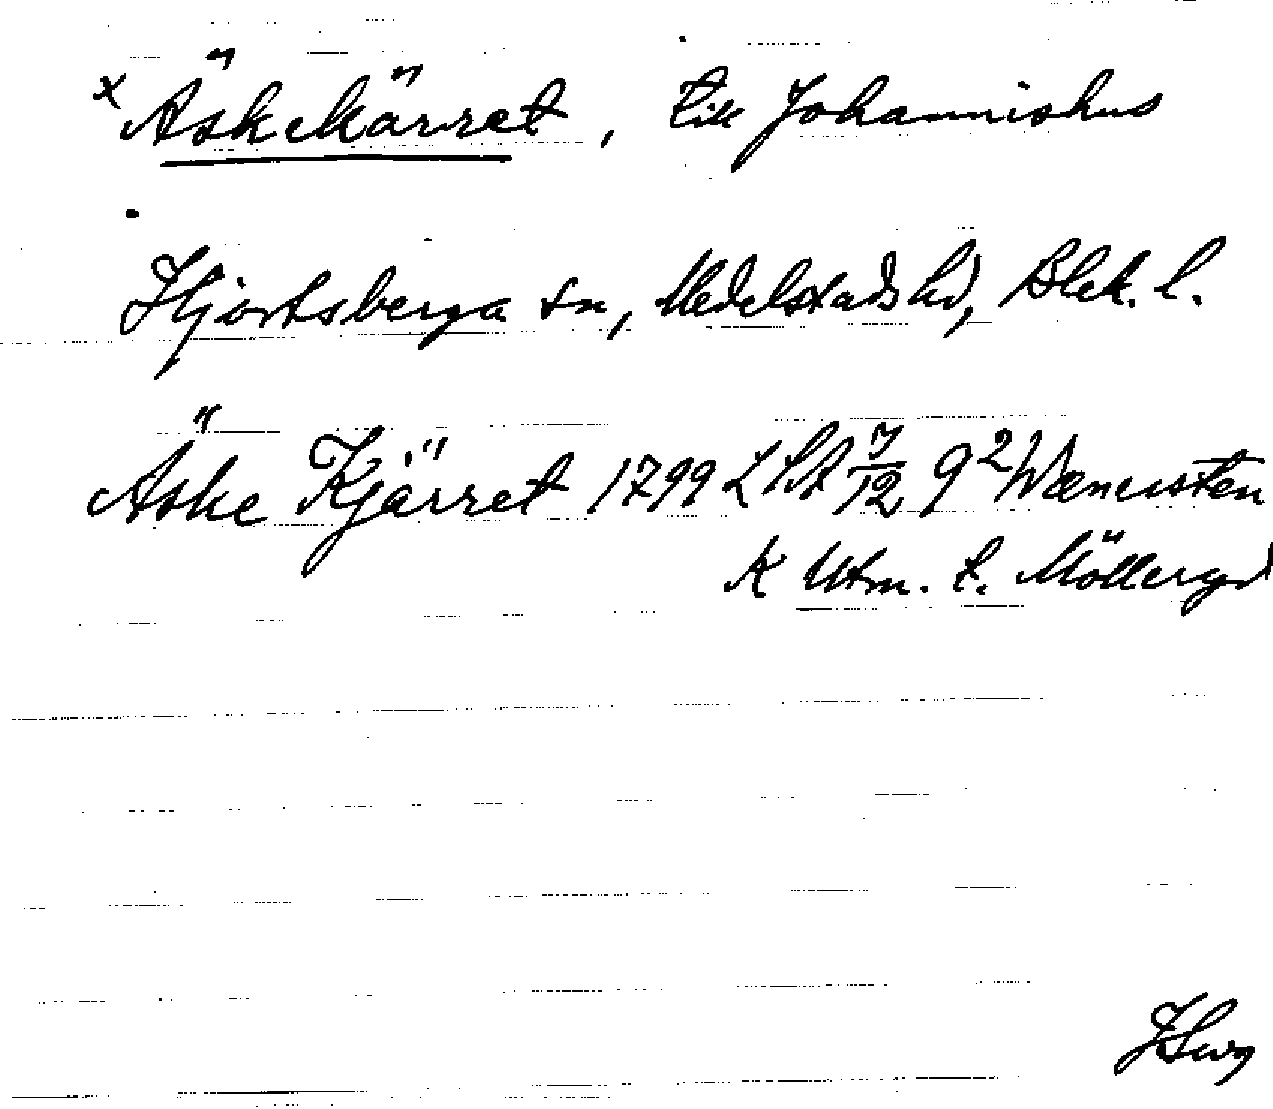 x Äskekärret, till Johannishus
Hjortsberga sn, Medelstads hd, Blek. l.
Äske Kjärret 1799 LSA 7/12 9² Wænersten
K Utm. t. Möllergd